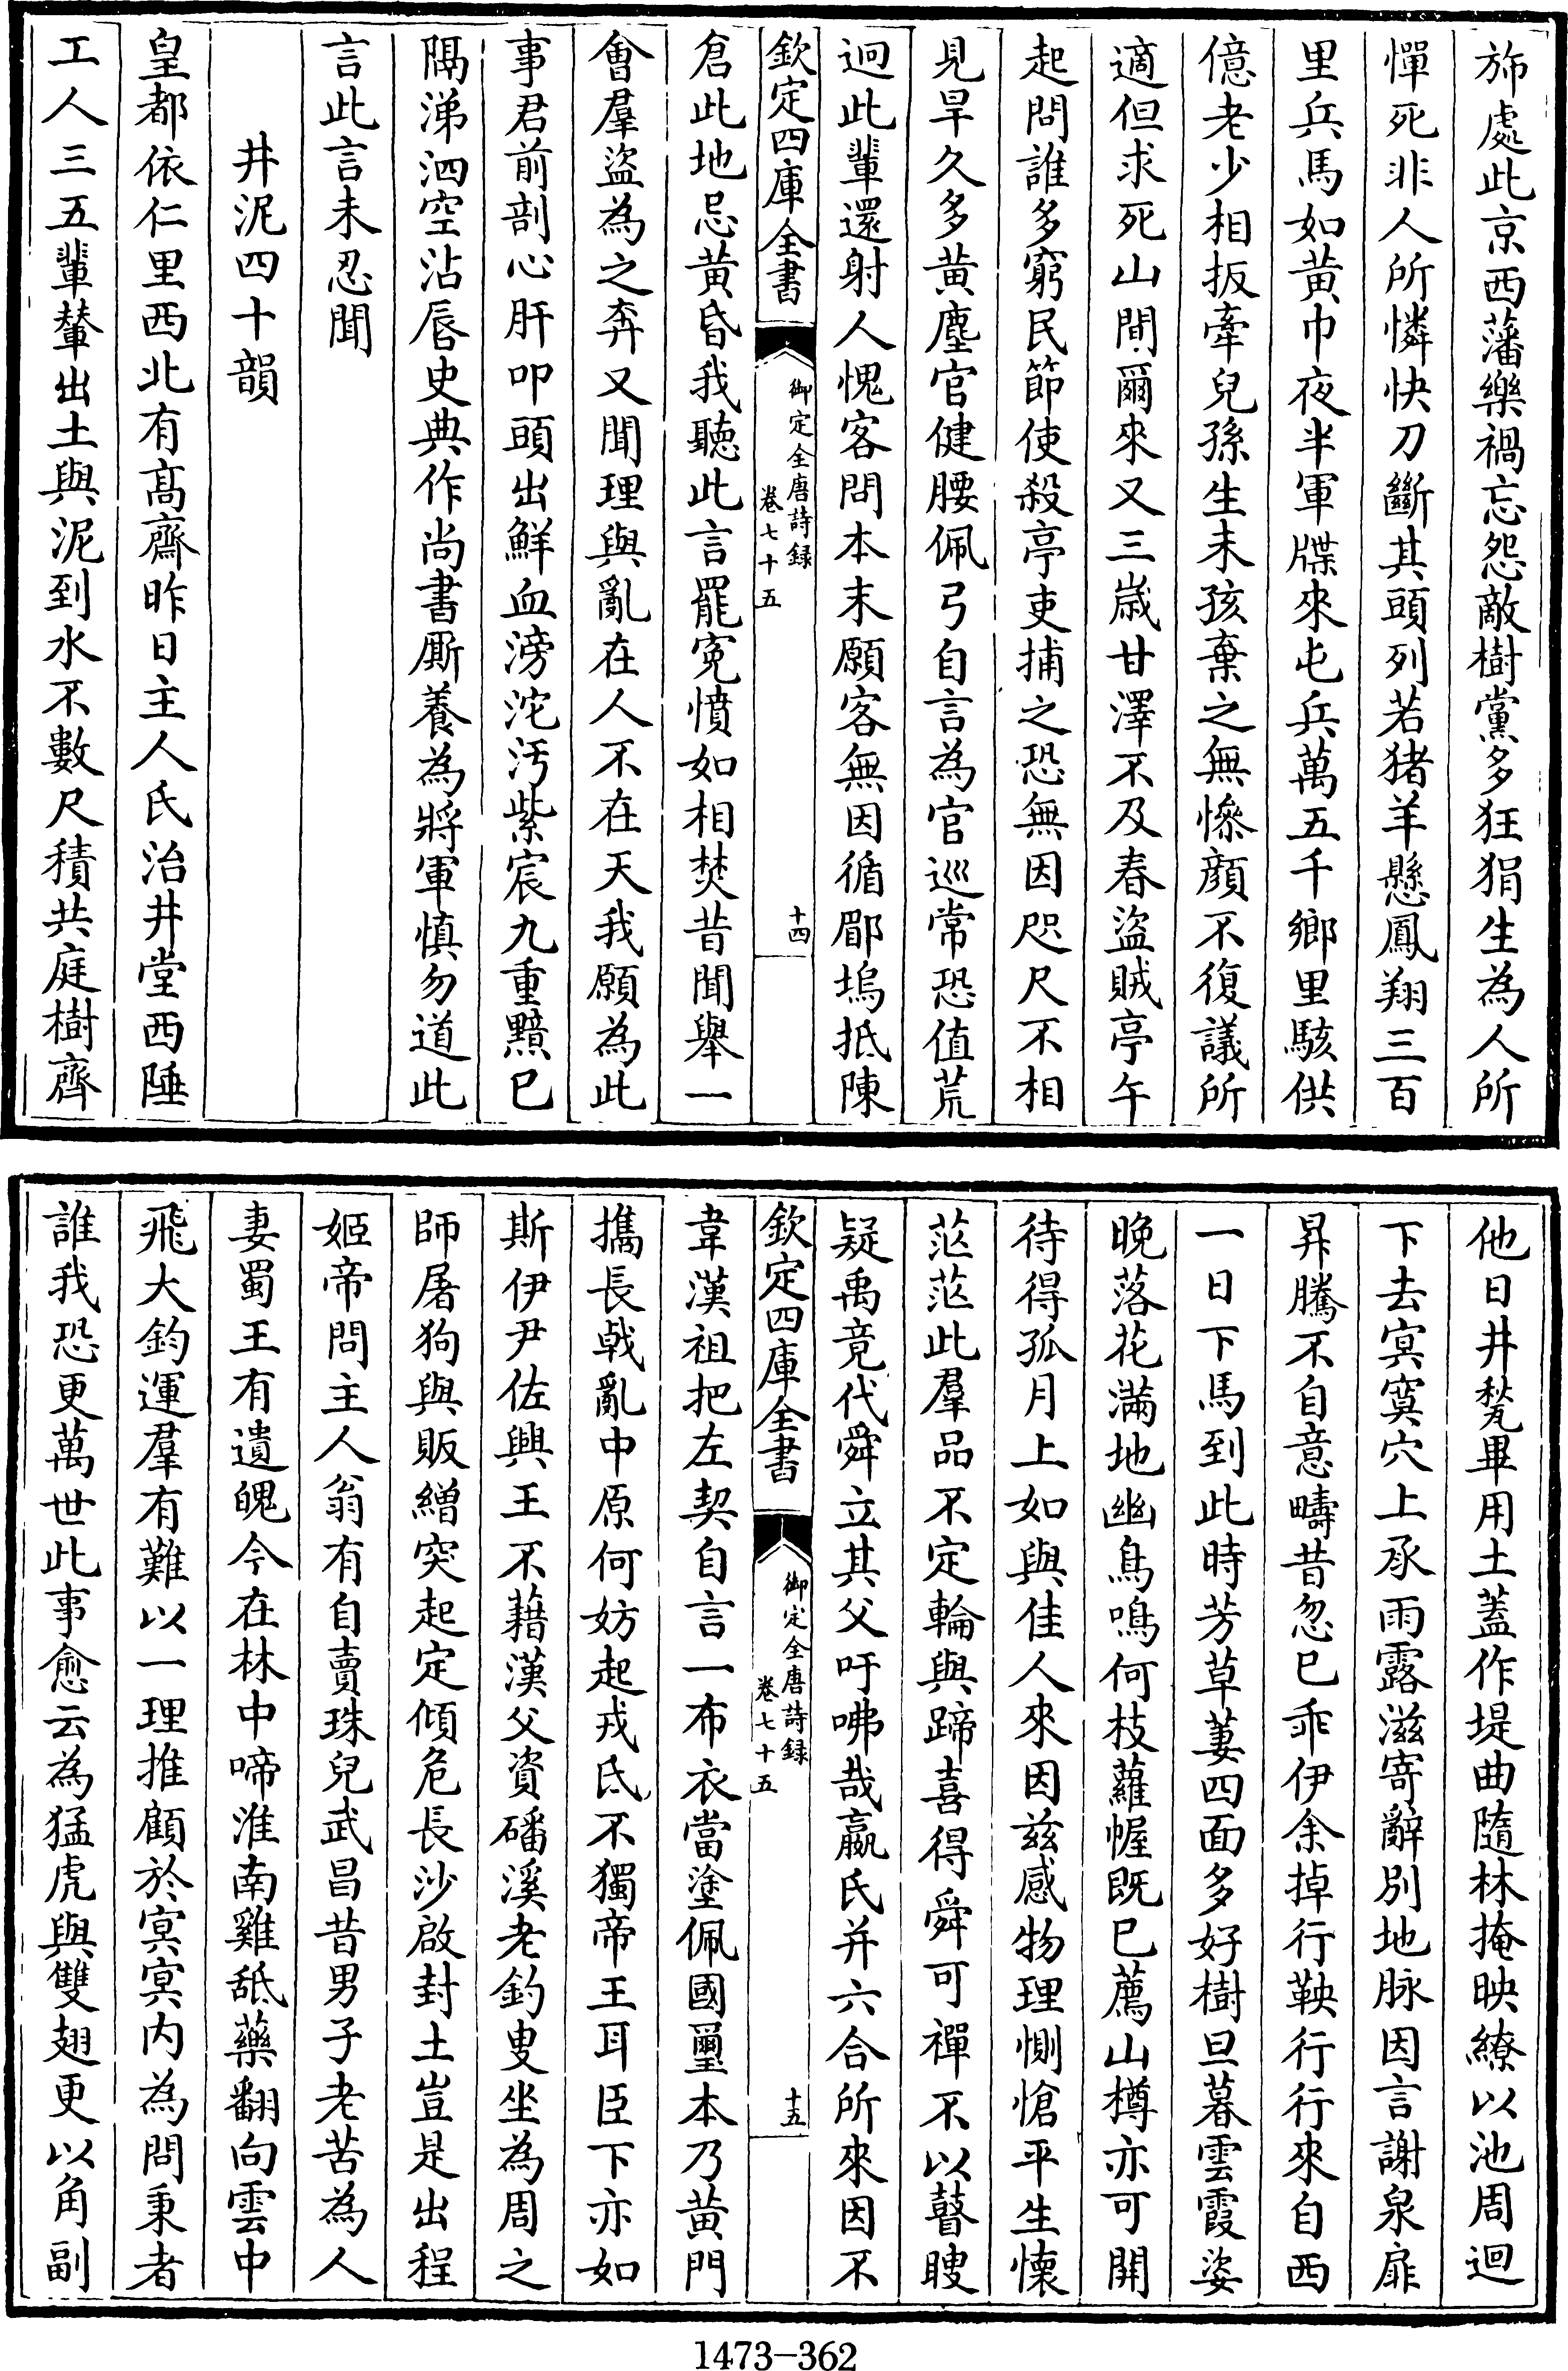 斾處此京西藩樂禍忘怨敵樹黨多狂狷生為人所
憚死非人所憐快刀斷其頭列若猪羊懸鳳翔三百
里兵馬如黄巾夜半軍牒來屯兵萬五千鄉里駭供
億老少相扳牽兒孫生未孩棄之無慘顔不復議所
適但求死山間爾來又三歳甘澤不及春盜賊亭午
起問誰多窮民節使殺亭吏捕之恐無因咫尺不相
見旱久多黄塵官健腰佩弓自言為官巡常恐值荒
迥此輩還射人愧客問本末願客無因循郿塢抵陳
欽定四庫全書
御定全唐詩録
卷七十五
十四
倉此地忌黄昏我聽此言罷寃憤如相焚昔聞舉一
會羣盜為之奔又聞理與亂在人不在天我願為此
事君前剖心肝叩頭出鮮血滂沱汚紫宸九重黯已
隔涕泗空沾唇史典作尚書厮養為將軍慎勿道此
言此言未忍聞
井泥四十韻
皇都依仁里西北有髙齋昨日主人氏治井堂西陲
工人三五輩輦出土與泥到水不數尺積共庭樹齊
他日井甃畢用土葢作堤曲隨林掩映繚以池周迴
下去㝠寞穴上承雨露滋寄辭别地脉因言謝泉扉
昇騰不自意疇昔忽已乖伊余掉行鞅行行來自西
一日下馬到此時芳草萋四面多好樹旦暮雲霞姿
晚落花滿地幽鳥鳴何枝蘿幄既已薦山樽亦可開
待得孤月上如與佳人來因兹感物理惻愴平生懷
茫茫此羣品不定輪與蹄喜得舜可禪不以瞽瞍
疑禹竟代舜立其父吁咈哉嬴氏并六合所來因不
欽定四庫全書
御定全唐詩録
卷七十五
十五
韋漢祖把左契自言一布衣當塗佩國璽本乃黄門
攜長戟亂中原何妨起戎氐不獨帝王耳臣下亦如
斯伊尹佐興王不藉漢父資磻溪老釣叟坐為周之
師屠狗與販繒突起定傾危長沙啟封土豈是出程
姬帝問主人翁有自賣珠兒武昌昔男子老苦為人
妻蜀王有遺魄今在林中啼淮南雞舐藥翻向雲中
飛大鈞運羣有難以一理推顧於㝠㝠内為問秉者
誰我恐更萬世此事愈云為猛虎與雙翅更以角副
1473-362